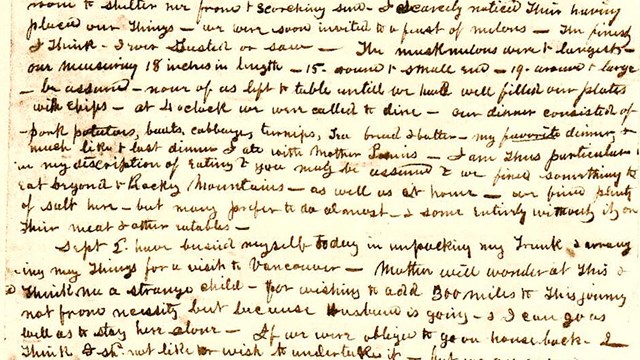 room to shelter me from t scorching sun - I scarcely noticed Their having
placed our Things - we were soon invited to a feast of melons - The finest
I Think - I ever tasted or saw - The muskmelons were t largest -
one measuring 18 inches in length - 15 - around t small end - 19 - around t large
- be assured - none of us left to table until we had well filled our plates
with chips - at 4 oclock we were called to dine - our dinner consisted of
pork potatoes, beets, cabbage, turnips, Tea bread & butter - my favorite dinner &
much like t last dinner I ate with Mother - I am Thus particular
in my description of Eating & you may be assured t we find something to
eat beyond t Rocky Mountains - as well as at home - we find plenty
of salt here - but many prefer to do almost - & some entirely without it, on
Their meat & other eatables -
Sept 2 have busied myself today in unpacking my Trunk & arrang
ing my Things for a visit to Vancouver - Mother will wonder at This &
Think me a strange child - for wishing to add 300 miles to This journey
not from necessity but because Husband is going - & I can go as
well as to stay here alone - If we were obliged to go on horseback - I
Think I sh. not like or wish to undertake it - but